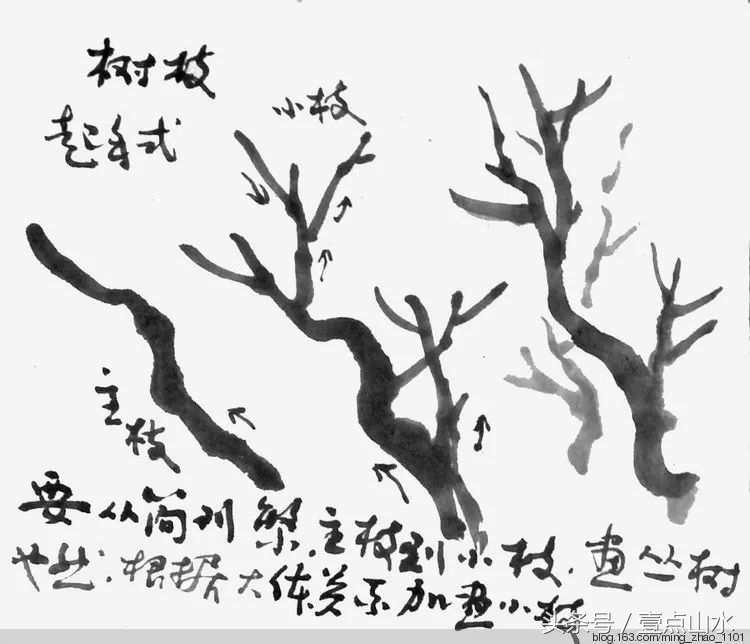 树枝
起手式
小枝
主枝
要从简到繁,主枝到小枝.画丛树
也此.根据大体关系加画小枝
头条号/壹点山水
blog.163.com/ming_zhao_1101